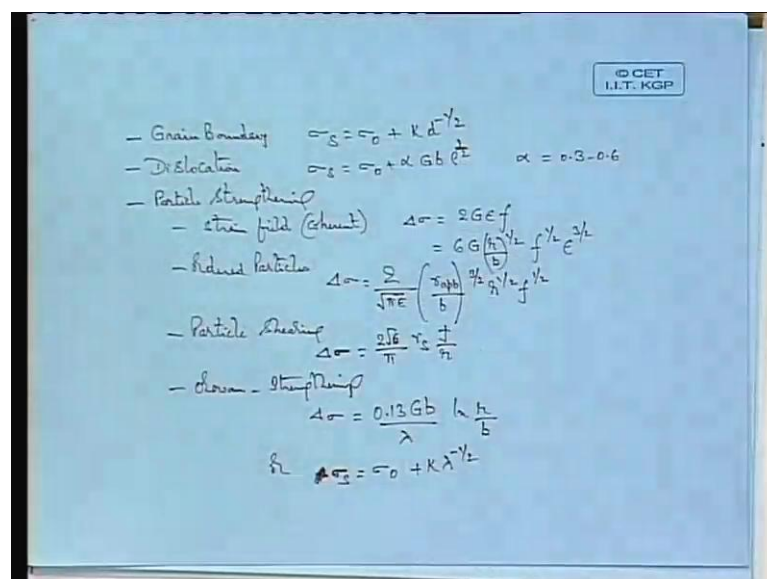 © CET
I.I.T. KGP
- Grain Boundary σs = σo + K d^-1/2
- Dislocation σs = σo + α Gb ρ^1/2 α = 0.3-0.6
- Particle Strengthening
- Strain field (Coherent) Δσ = 2GEf
= 6G(r/b)^1/2 f^1/2 E^3/2
- Ordered Particles Δσ = 2/√πE (γapb/b)^3/2 r^1/2 f^1/2
- Particle Shearing
Δσ = 2√6/π γs f/r
- Orowan - Strengthening
Δσ = 0.13Gb/λ ln r/b
or σs = σo + Kλ^-1/2